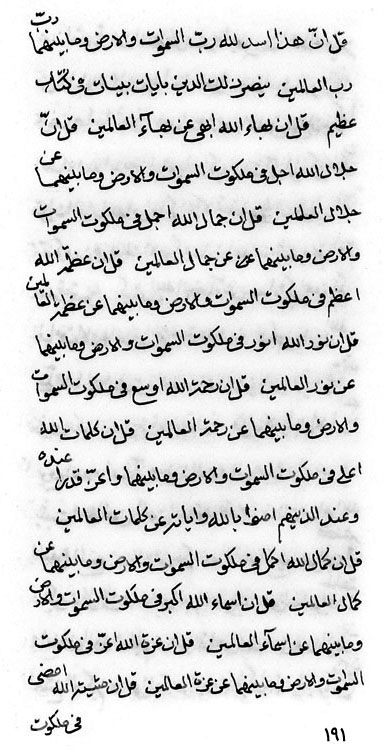 قل انّ هذا اسد لله ربّ السموات والارض وما بينهما ربّ
رب العالمين ينصرن لت الدين بايات بينات فى كتاب
عظيم قل ان بهاء الله ابهى عن بهاآء العالمين قل انّ
جلال الله اجل فى ملكوت السموات والارض وما بينهما عن
جلال العالمين قل ان جمال الله اجمل فى ملكوت السموات
والارض وما بينهما عن جمال العالمين قل ان عظمة الله
اعظم فى ملكوت السموات والارض وما بينهما عن عظمة العالمين
قل ان نور الله انور فى ملكوت السموات والارض وما بينهما
عن نور العالمين قل ان رحمة الله اوسع فى ملكوت السموات
والارض وما بينهما عن رحمة العالمين قل ان كلمات الله
اعلى فى ملكوت السموات والارض وما بينهما واعزّ قدرا عنده
وعند الذينهم امنوا بالله واياته عن كلمات العالمين
قل ان كمال الله اكمل فى ملكوت السموات والارض وما بينهما عن
كمال العالمين قل ان اسماء الله اكبر فى ملكوت السموات والارض
وما بينهما عن اسمآء العالمين قل ان عزة الله اعزّ فى ملكوت
السموات والارض وما بينهما عن عزة العالمين قل ان مشية الله امضى
فى ملكوت
١٩١